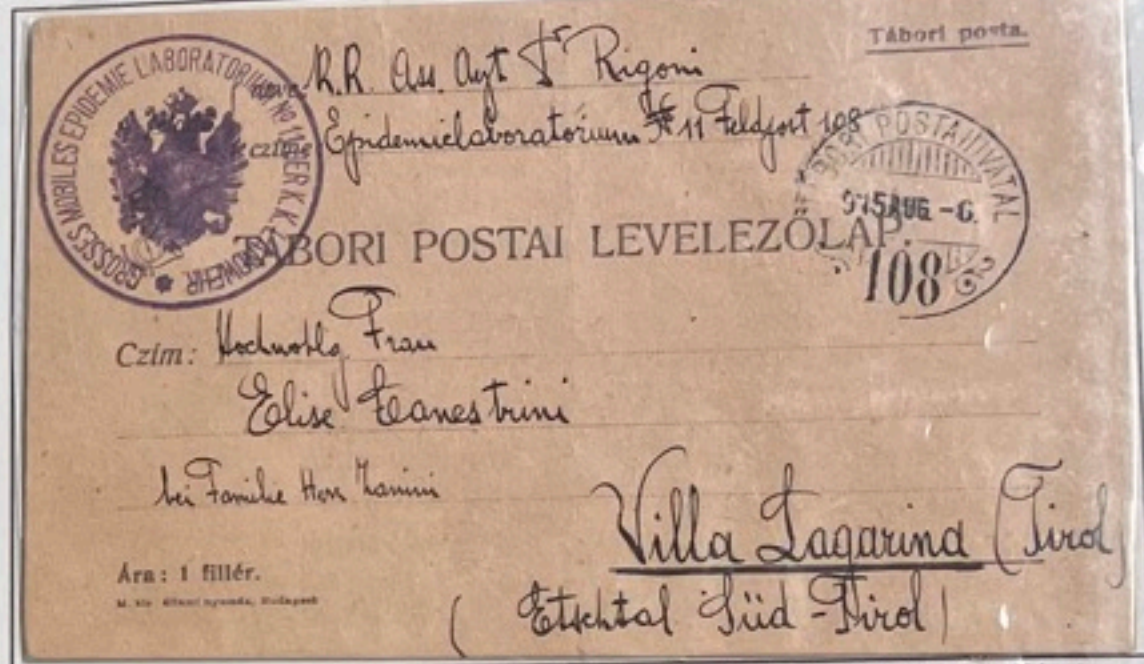 Tábori posta.
GROSSES MOBILES EPIDEMIE LABORATORIUM No 11 DER K.K. LANDWEHR
K.K. Ass. Arzt Dr Rigoni
czíme Epidemielaboratorium № 11 Feldpost 108
TÁBORI POSTAHIVATAL
915 AUG -6.
108
TÁBORI POSTAI LEVELEZŐLAP.
Czím: Hochwohlg Frau
Elise Canestrini
bei Familie Herr Zanini
Villa Lagarina (Tirol)
(Etschtal Süd-Tirol)
Ára: 1 fillér.
M. kir. állami nyomda, Budapest